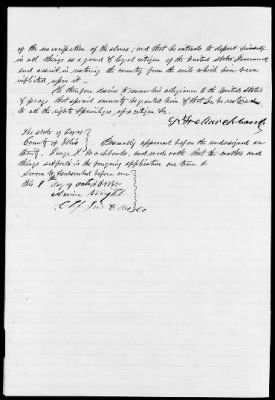 of the emancipation of the slaves; and that he intends to deport himself
in all things as a good & loyal citizen of the United States Government
and assist in restoring the country from the evils which have been
inflicted upon it
He therefore desires to renew his allegiance to the United States
& prays that special amnesty be granted him & that he be restored
to all the rights & privileges of a citizen &c
The state of Texas
County of Ellis
Personally appeared before the undersigned au-
thority, and made oath that the matter and
things set forth in the foregoing application are true &
Sworn to & subscribed before me
this day of
Wright